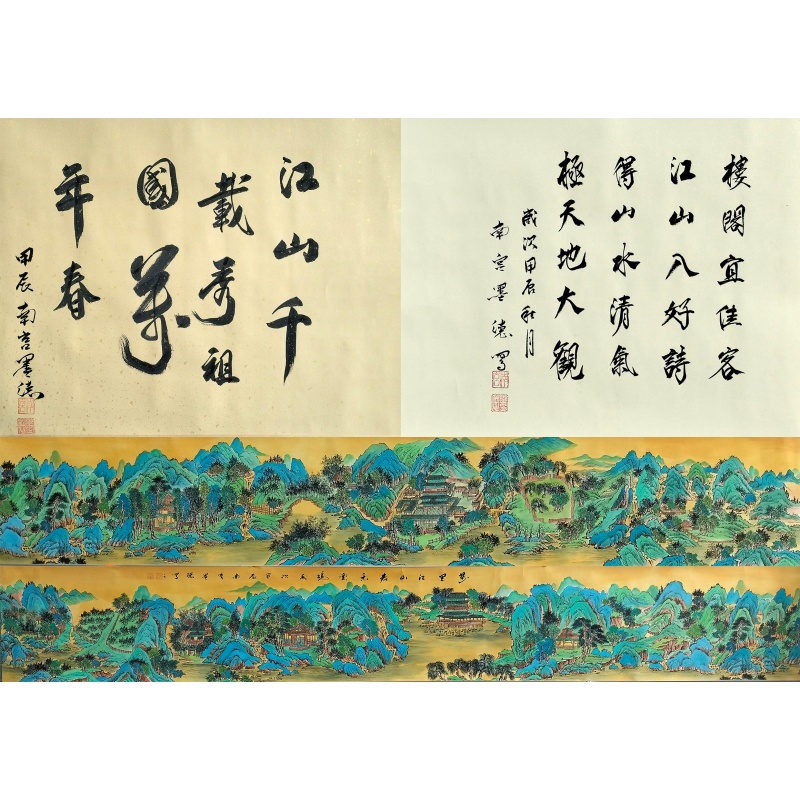 江山千
載秀祖
國萬
年春
甲辰 南宫墨德
樓閣宜佳客
江山入好詩
得山水清氣
極天地大觀
歲次甲辰秋月
南宫墨德寫